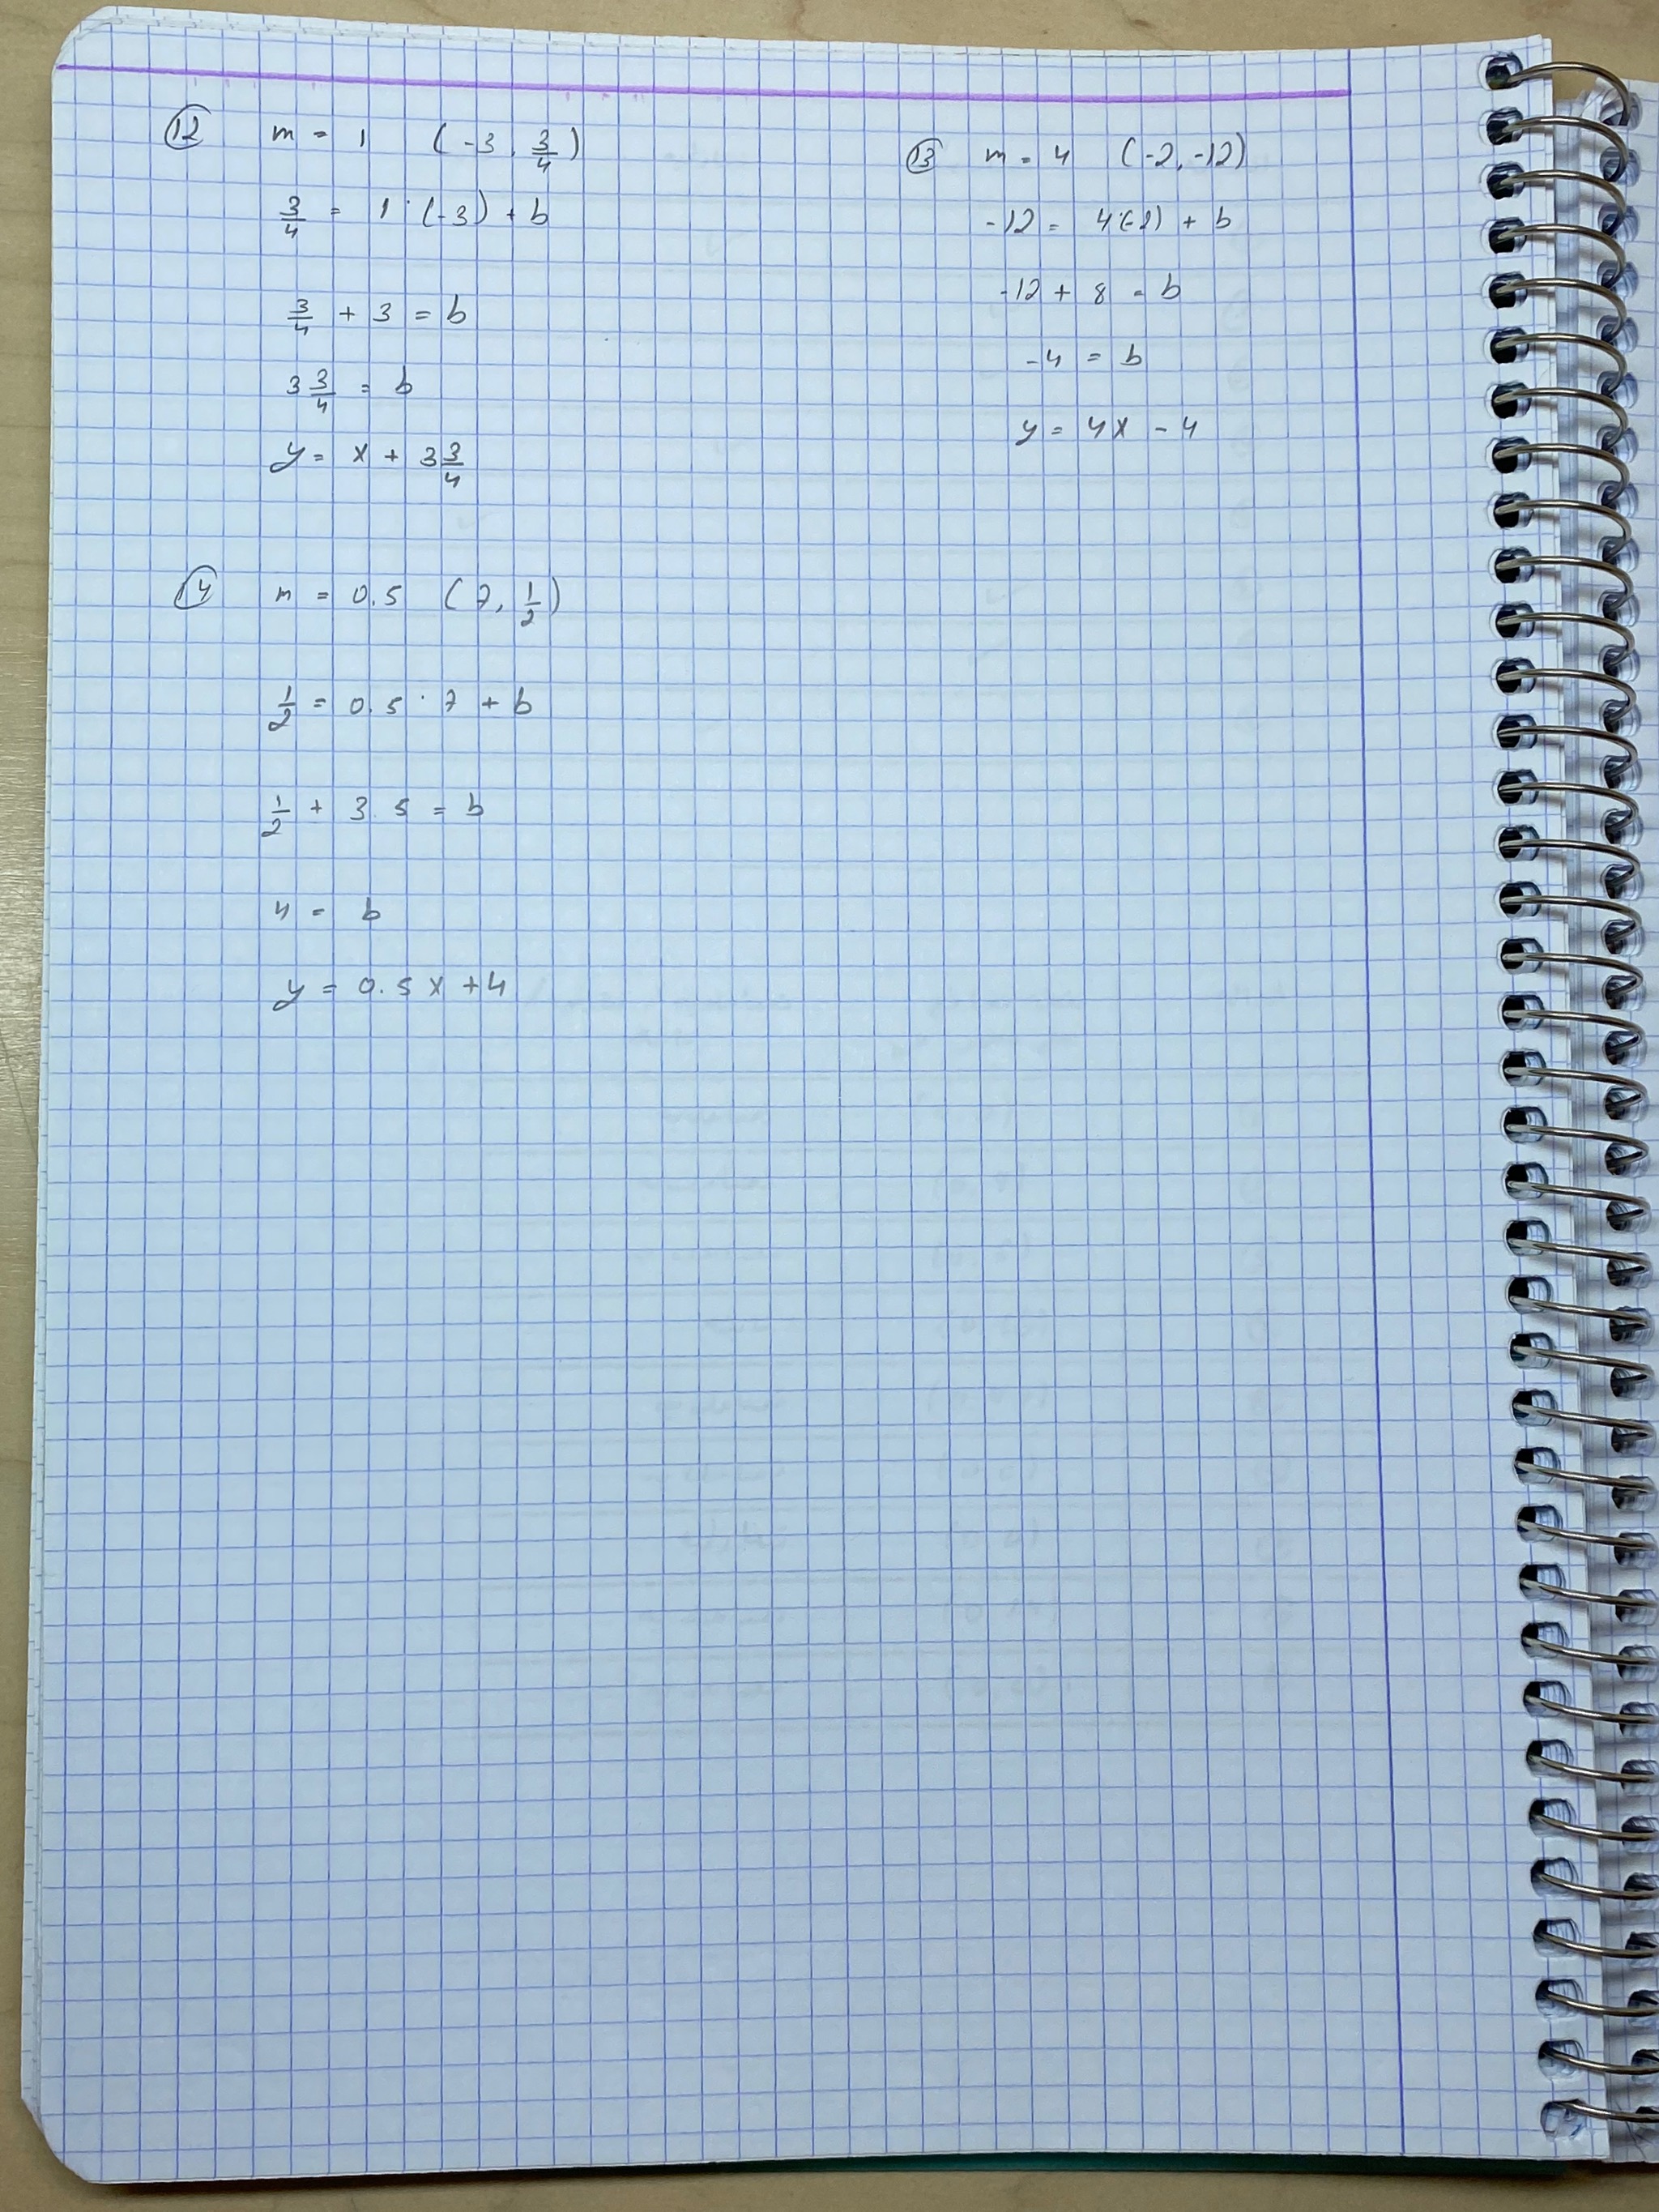 12 m = 1 (-3, 3/4)
3/4 = 1 · (-3) + b
3/4 + 3 = b
3 3/4 = b
y = x + 3 3/4
13 m = 4 (-2, -12)
-12 = 4·(-2) + b
-12 + 8 = b
-4 = b
y = 4x - 4
14 m = 0.5 (7, 1/2)
1/2 = 0.5 · 7 + b
1/2 + 3.5 = b
4 = b
y = 0.5x + 4